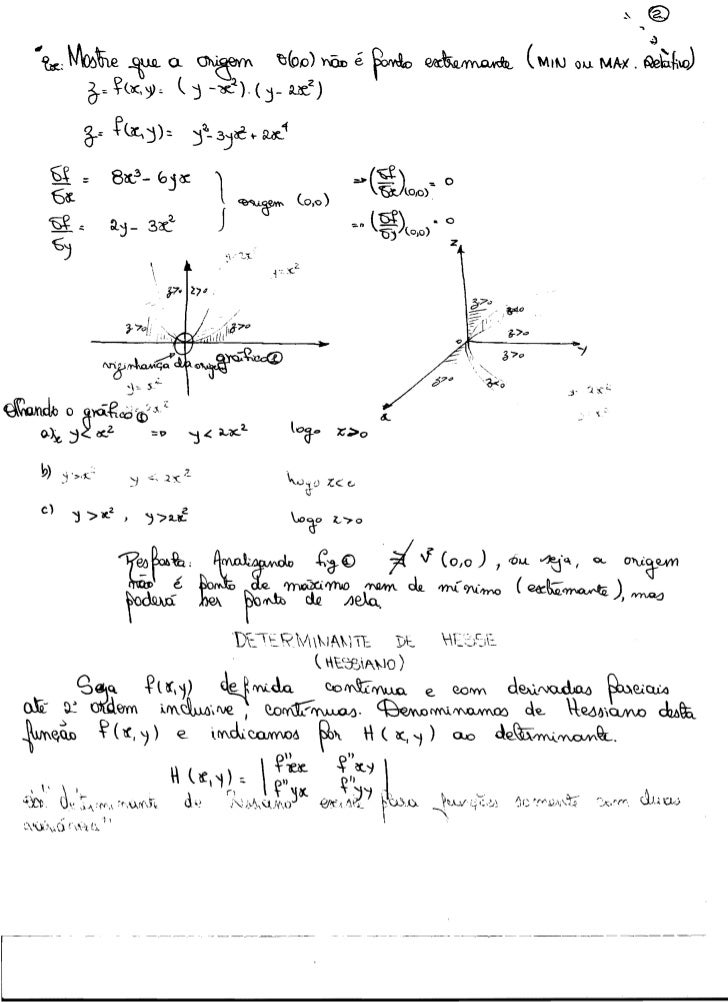 ②
Ex: Mostre que a origem θ(0,0) não é ponto extremante (MIN OU MAX. Relativo)
z = f(x,y) = (y - x²).(y - 2x²)
z = f(x,y) = y² - 3yx² + 2x⁴
δf/δx = 8x³ - 6yx } origem (0,0) => (δf/δx)(0,0) = 0
δf/δy = 2y - 3x² => (δf/δy)(0,0) = 0
y = 2x²
y = x²
z>0 z>0
z>0 z>0
vizinhança da origem
gráfico ①
y = x²
z
z>0 z<0
z>0
o y
z>0
z>0 z<0
x
y = 2x²
Olhando o gráfico ①
a) y < x² => y < 2x² logo z>0
b) y > x² y < 2x² logo z<0
c) y > x², y > 2x² logo z>0
Resposta: Analizando fig ① ∄ V (0,0), ou seja, a origem
não é ponto de máximo nem de mínimo (extremante), mas
poderá ser ponto de sela
DETERMINANTE DE HESSE
(HESSIANO)
Seja f(x,y) definida contínua e com derivadas parciais
até 2ª ordem inclusive, contínuas. Denominamos de Hessiano desta
função f(x,y) e indicamos por H(x,y) ao determinante.
H(x,y) = | f"xx f"xy |
| f"yx f"yy |
determinante de existe para funções somente com duas
variáveis"